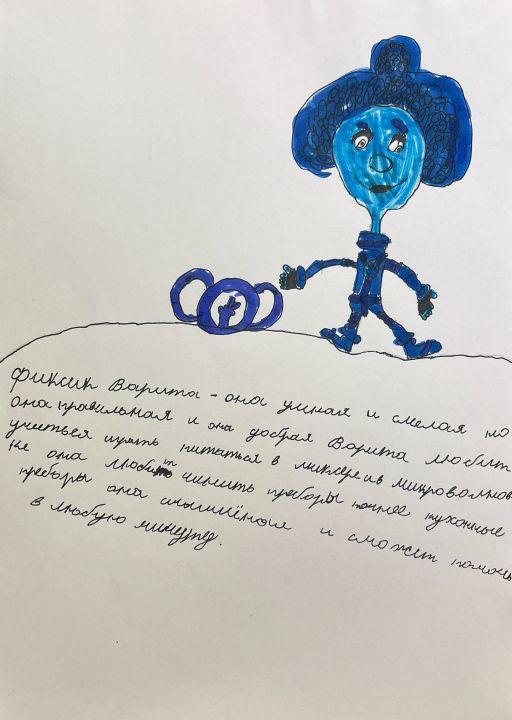 Фиксик Варита - она умная и смелая но
она правильная и она добрая Варита любит
учиться играть питаться в миксере и в микроволнов
ке она любит чинить преборы точнее кухонные
преборы она смышлёная и сможет помочь
в любую минуту.